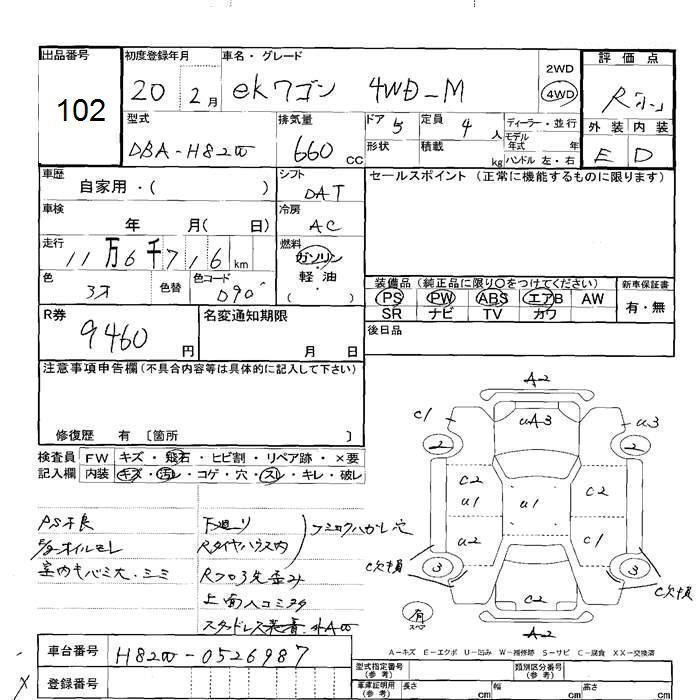 出品番号
102
初度登録年月
20 2月
車名・グレード
ekワゴン 4WD-M
2WD
4WD
評価点
外装 内装
E D
型式
DBA-H82W
排気量
660 CC
ドア 5
定員 4 人
ディーラー・並行
モデル
年式 年
形状
積載 kg
ハンドル 左・右
車歴
自家用・( )
シフト
DAT
セールスポイント (正常に機能するものに限ります)
車検
年 月( 日)
冷房
AC
走行
11万6千716km
燃料
ガソリン
軽・油
( )
色
色替
色コード
D90
装備品 (純正品に限り〇をつけてください)
新車保証書
PS PW ABS エアB AW
有・無
SR ナビ TV カワ
R券
9460円
名変通知期限
月 日
後日品
注意事項申告欄(不具合内容等は具体的に記入して下さい)
修復歴 有 〔箇所 〕
検査員 FW キズ・飛石・ヒビ割・リペア跡・×要
記入欄 内装 キズ・汚レ・コゲ・穴・スレ・キレ・破レ
PS不良
下廻リ
Rタイヤハウス内
室内キバミ大・シミ
A2
C1
uA3
u3
2
2
C2
u1
u1
C2
u2
C1
3
3
C欠損
C欠損
C2
A2
有
スペア
A―キズ E―エクボ U―凹み W―補修跡 S―サビ C―腐食 XX―交換済
車台番号
H82W-0526987
登録番号
型式指定番号
(参考)
類別区分番号
(参考)
車庫証明用
(参考)
長さ cm
幅 cm
高さ cm